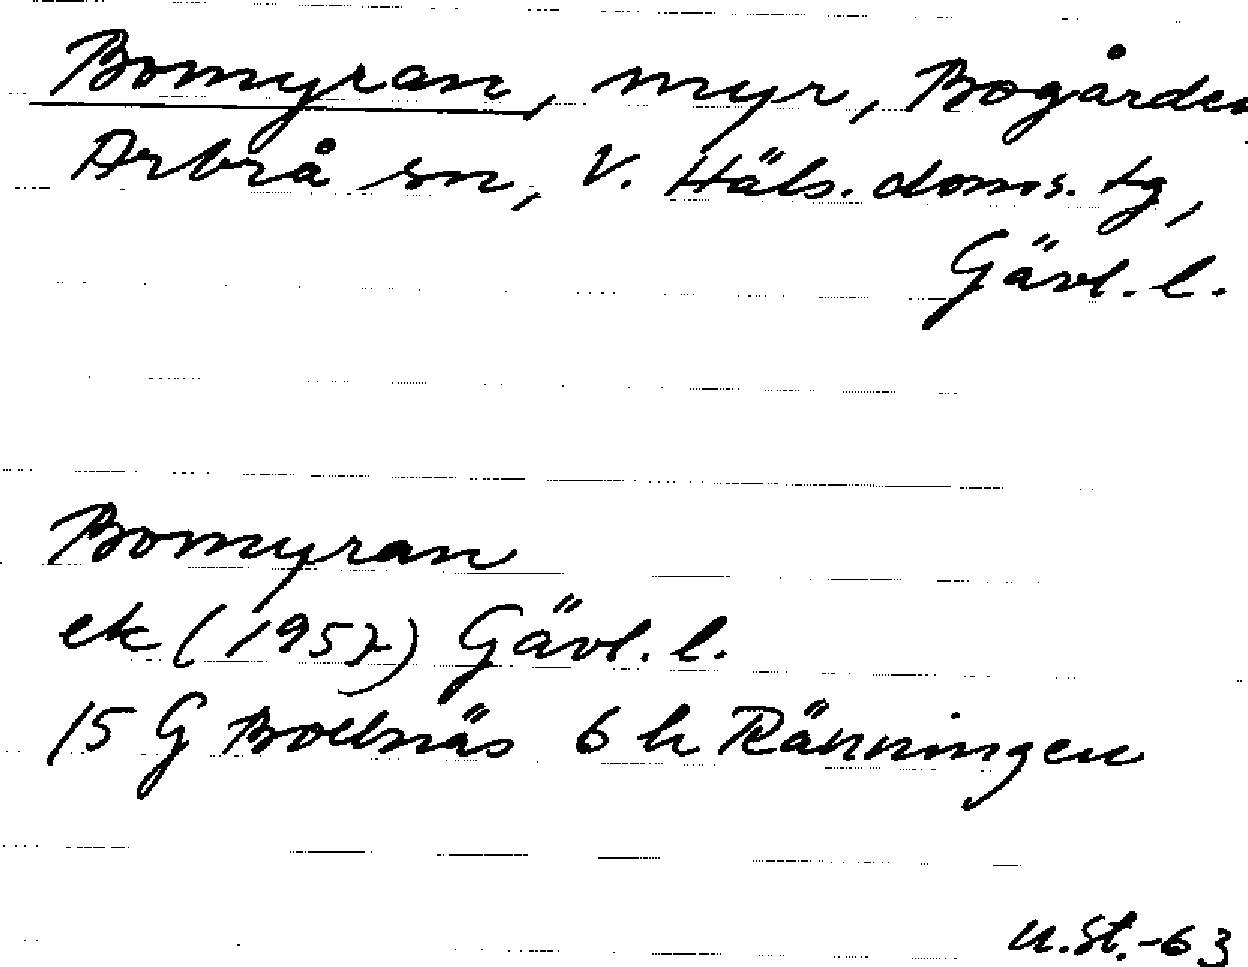 Bomyran, myr, Bogården
Arbrå sn, V. Häls. doms. tg,
Gävl. l.
Bomyran
ek (1957) Gävl. l.
15 G Bollnäs 6 h Ränningen
U.St.-63